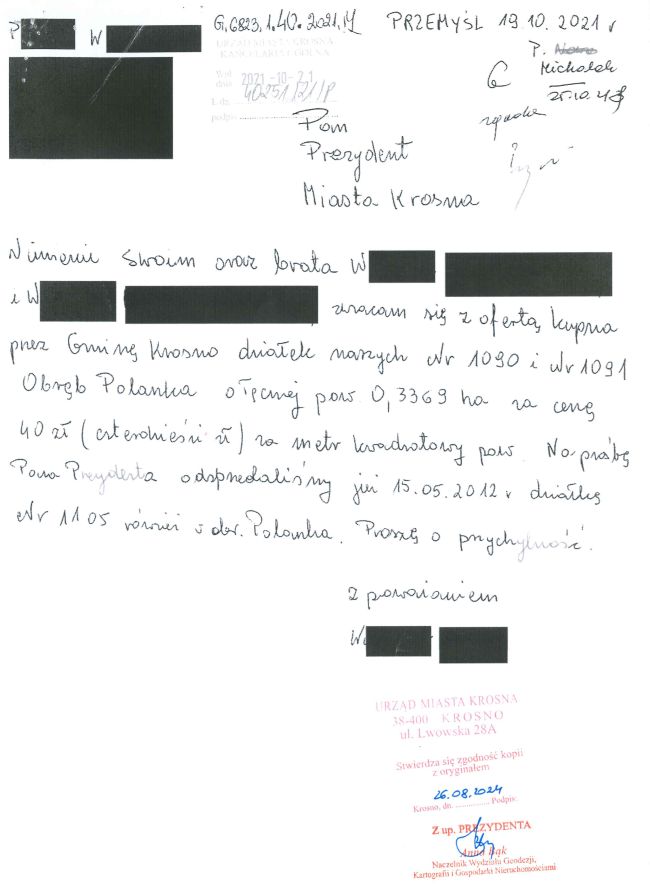 P W G.6823.1.40.2021.M PRZEMYŚL 19.10.2021 r
URZĄD MIASTA KROSNA
KANCELARIA OGÓLNA
Wpł. dnia 2021-10-21
L.dz. 40251/21/P
podpis
P. Nowa
Michalak
25.10.
Pan
Prezydent
Miasta Krosna
W imieniu swoim oraz brata W
i W zwracam się z ofertą kupna
przez Gminę Krosno działek naszych Nr 1090 i Nr 1091
Obręb Polanka o łącznej pow 0,3369 ha za cenę
40 zł (czterdzieści zł) za metr kwadratowy pow. Na prośbę
Pana Prezydenta odsprzedaliśmy już 15.05.2012 r działkę
Nr 1105 również w obr. Polanka. Proszę o przychylność.
Z poważaniem
W
URZĄD MIASTA KROSNA
38-400 KROSNO
ul. Lwowska 28A
Stwierdza się zgodność kopii
z oryginałem
26.08.2024
Krosno, dn. Podpis:
Z up. PREZYDENTA
Anna Bąk
Naczelnik Wydziału Geodezji,
Kartografii i Gospodarki Nieruchomościami